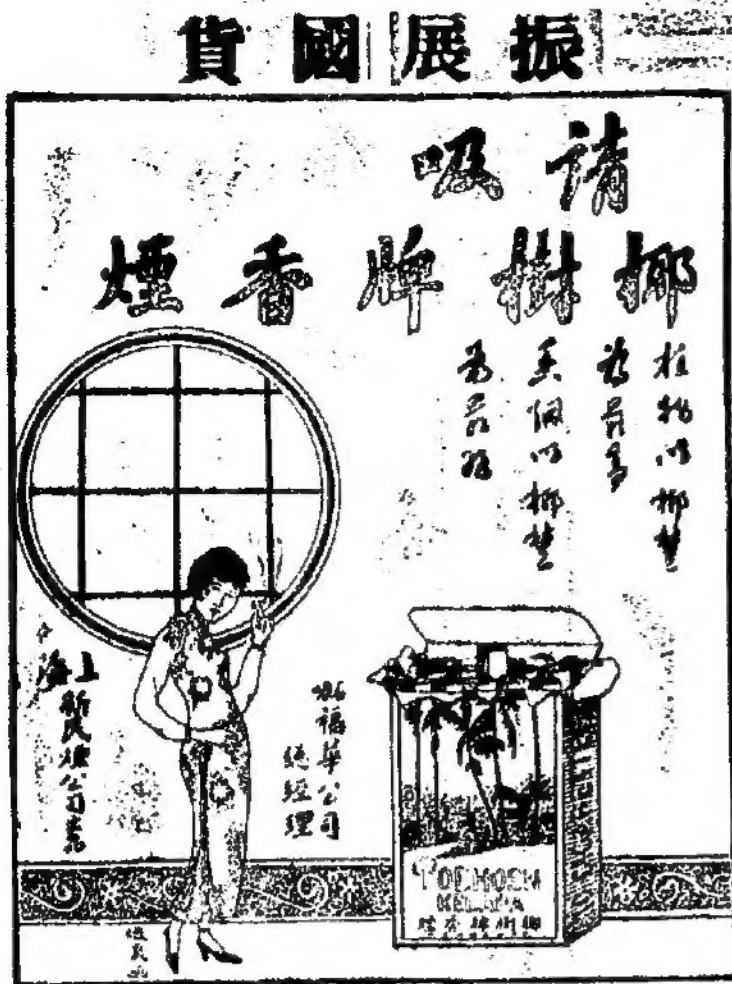 振展國貨
請吸
椰樹牌香煙
植物以椰樹
為最高
香烟以椰樹
為最
上海新民煙公司出品
福華公司
總經理
POEHOEN
KELAPA
椰樹牌香煙